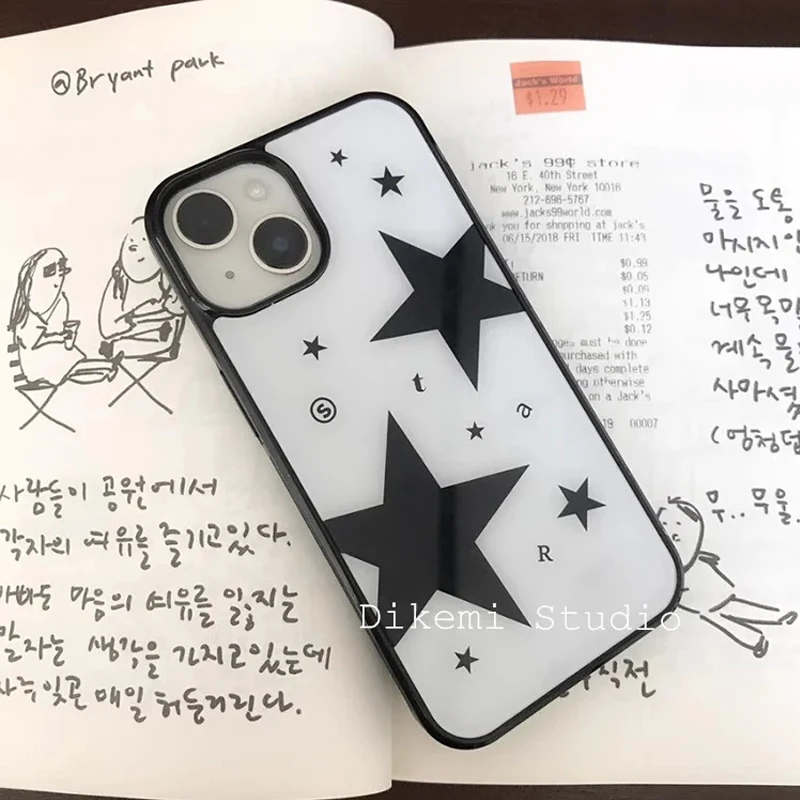 @Bryant park
Jack's World
$1.29
jack's 99¢ store
16 E. 40th Street
New York, New York 10016
212-696-5767
www.jacks99world.com
you for shopping at jack's
06/15/2018 FRI TIME 11:43
$0.99
ETURN $0.05
$0.09
$1.13
$1.25
$0.12
must be done
purchased with
days complete
otherwise
on a Jack's
19 00007
물을
마시지
나인데
너무
계속
s t a
R
사람들이 공원에서
각자의 여유를 즐기고있다.
마음의 여유를 잃지는
말자는 생각을 가지고있는데
매일 허둥거린다.
무.. 무울
Dikemi Studio